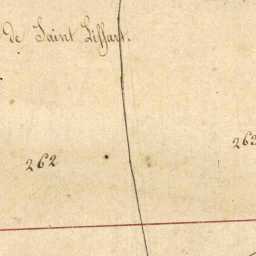 de Saint Liffart.
262
263